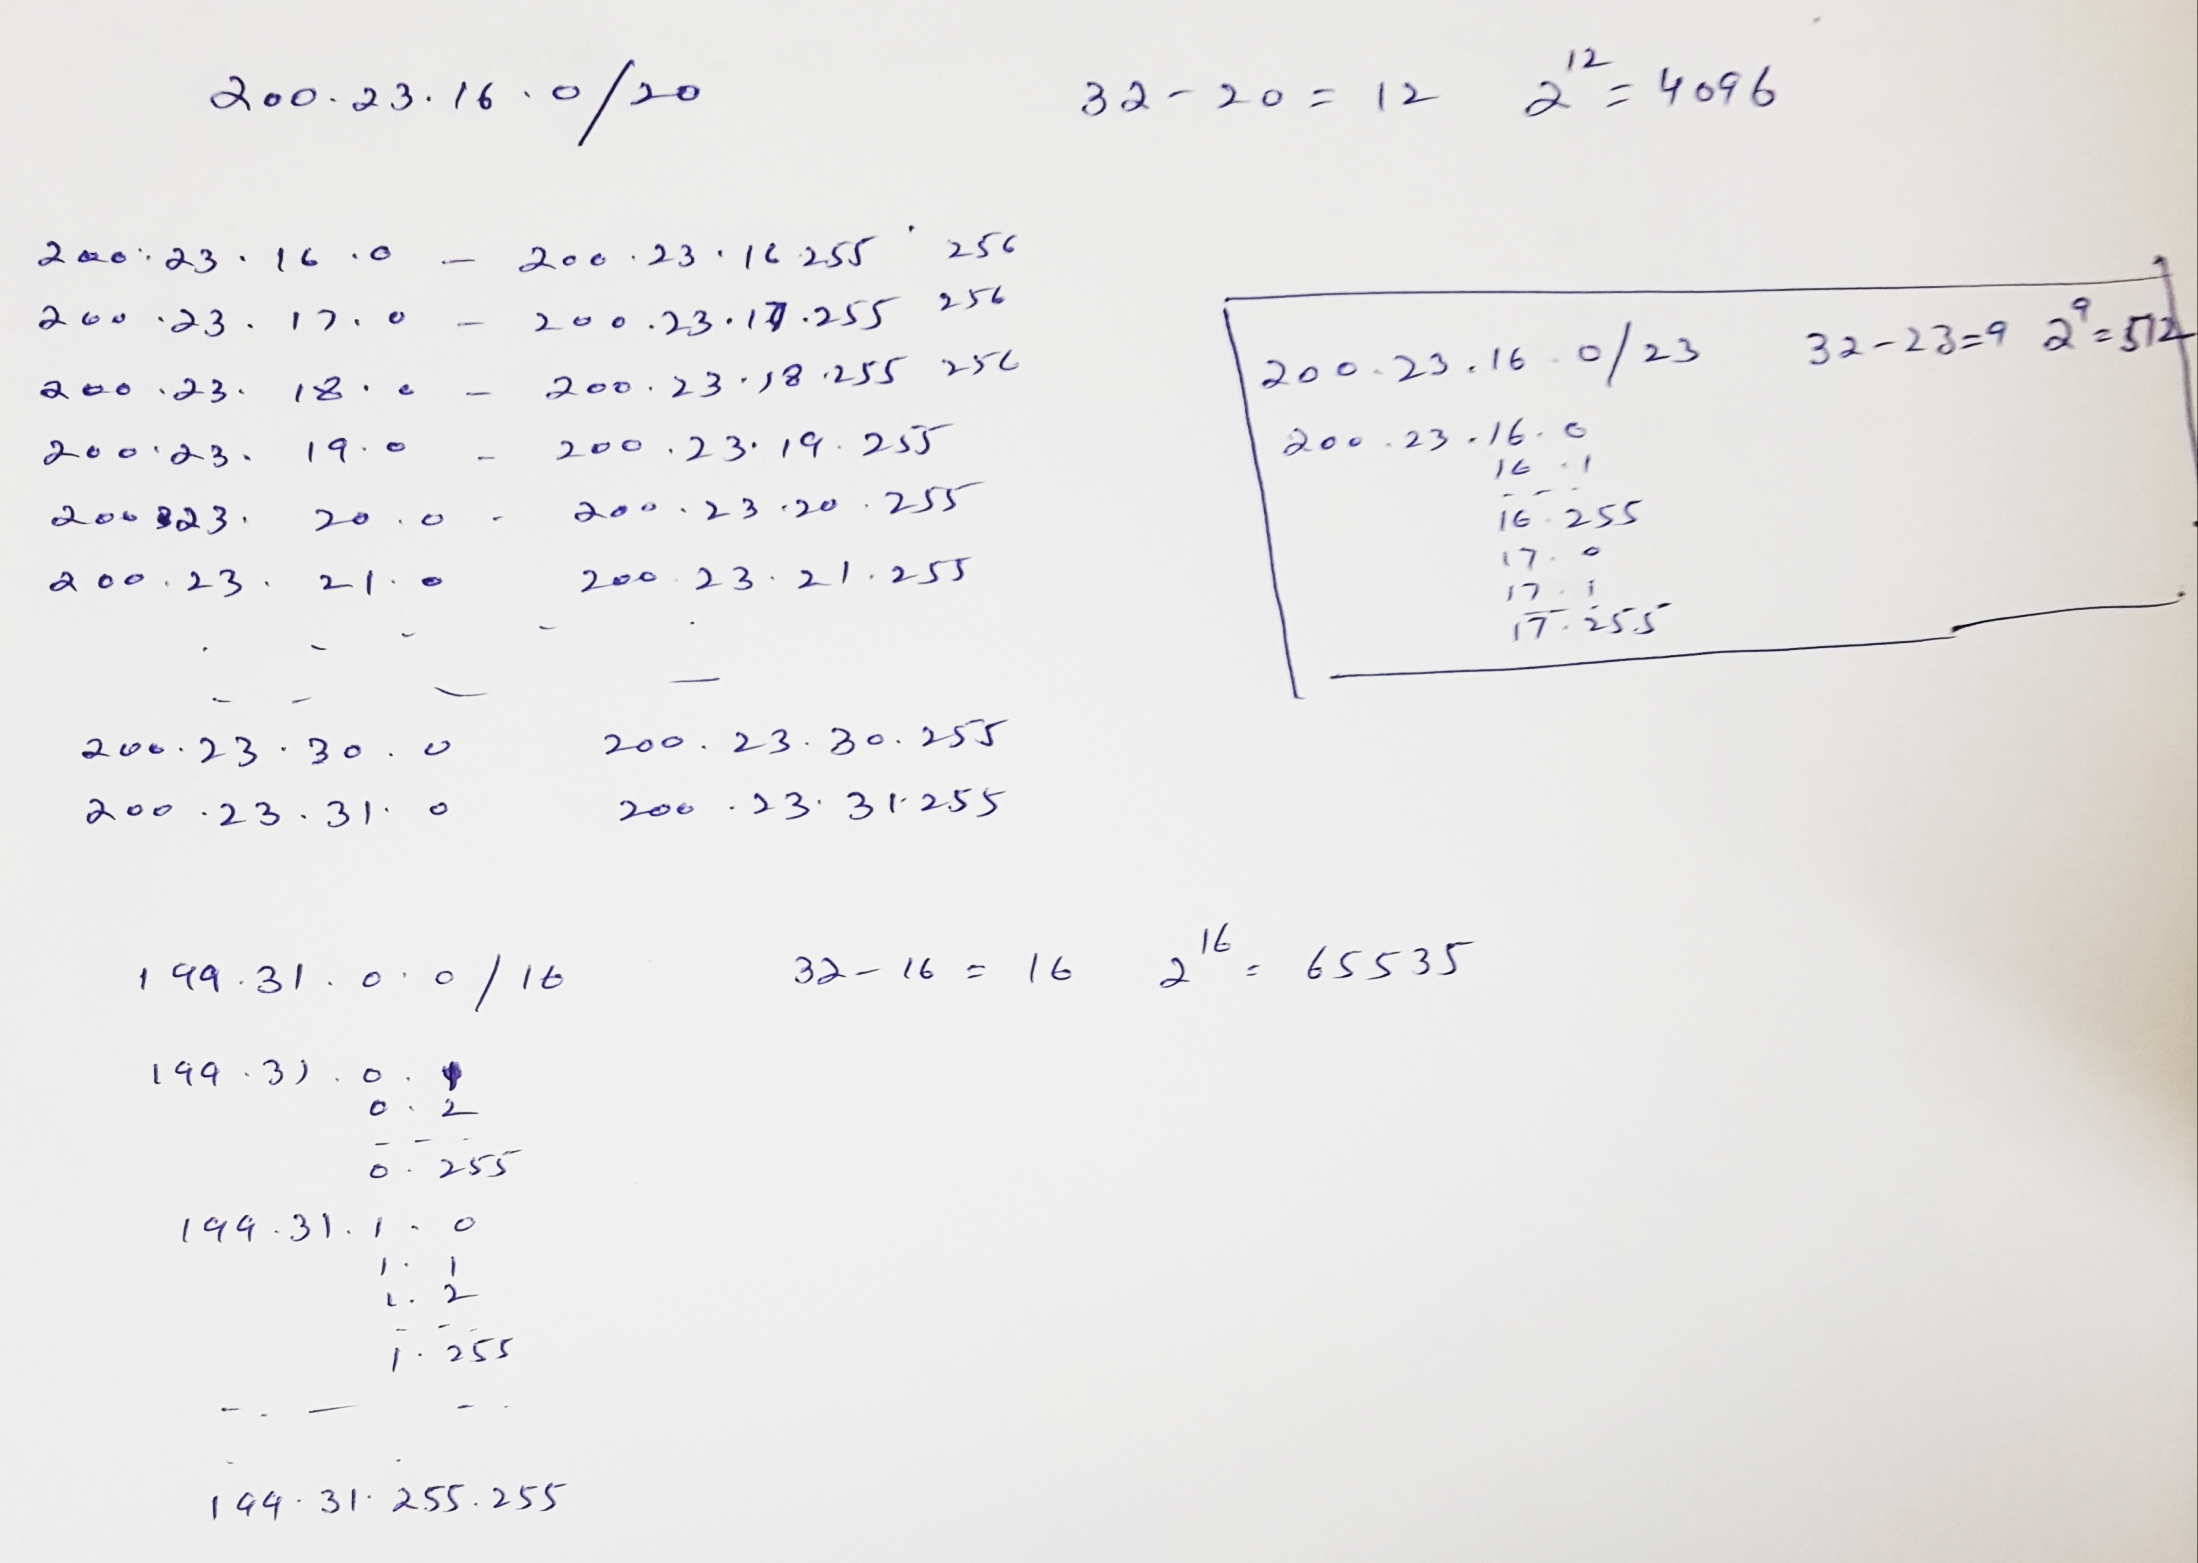 200.23.16.0/20
32-20=12 2^12=4096
200.23.16.0 - 200.23.16.255 256
200.23.17.0 - 200.23.17.255 256
200.23.18.0 - 200.23.18.255 256
200.23.19.0 - 200.23.19.255
200.23.20.0 - 200.23.20.255
200.23.21.0 200.23.21.255
200.23.30.0 200.23.30.255
200.23.31.0 200.23.31.255
200.23.16.0/23 32-23=9 2^9=512
200.23.16.0
16.1
- - -
16.255
17.0
17.1
17.255
199.31.0.0/16 32-16=16 2^16=65535
199.31.0.1
0.2
- - -
0.255
199.31.1.0
1.1
1.2
- - -
1.255
199.31.255.255